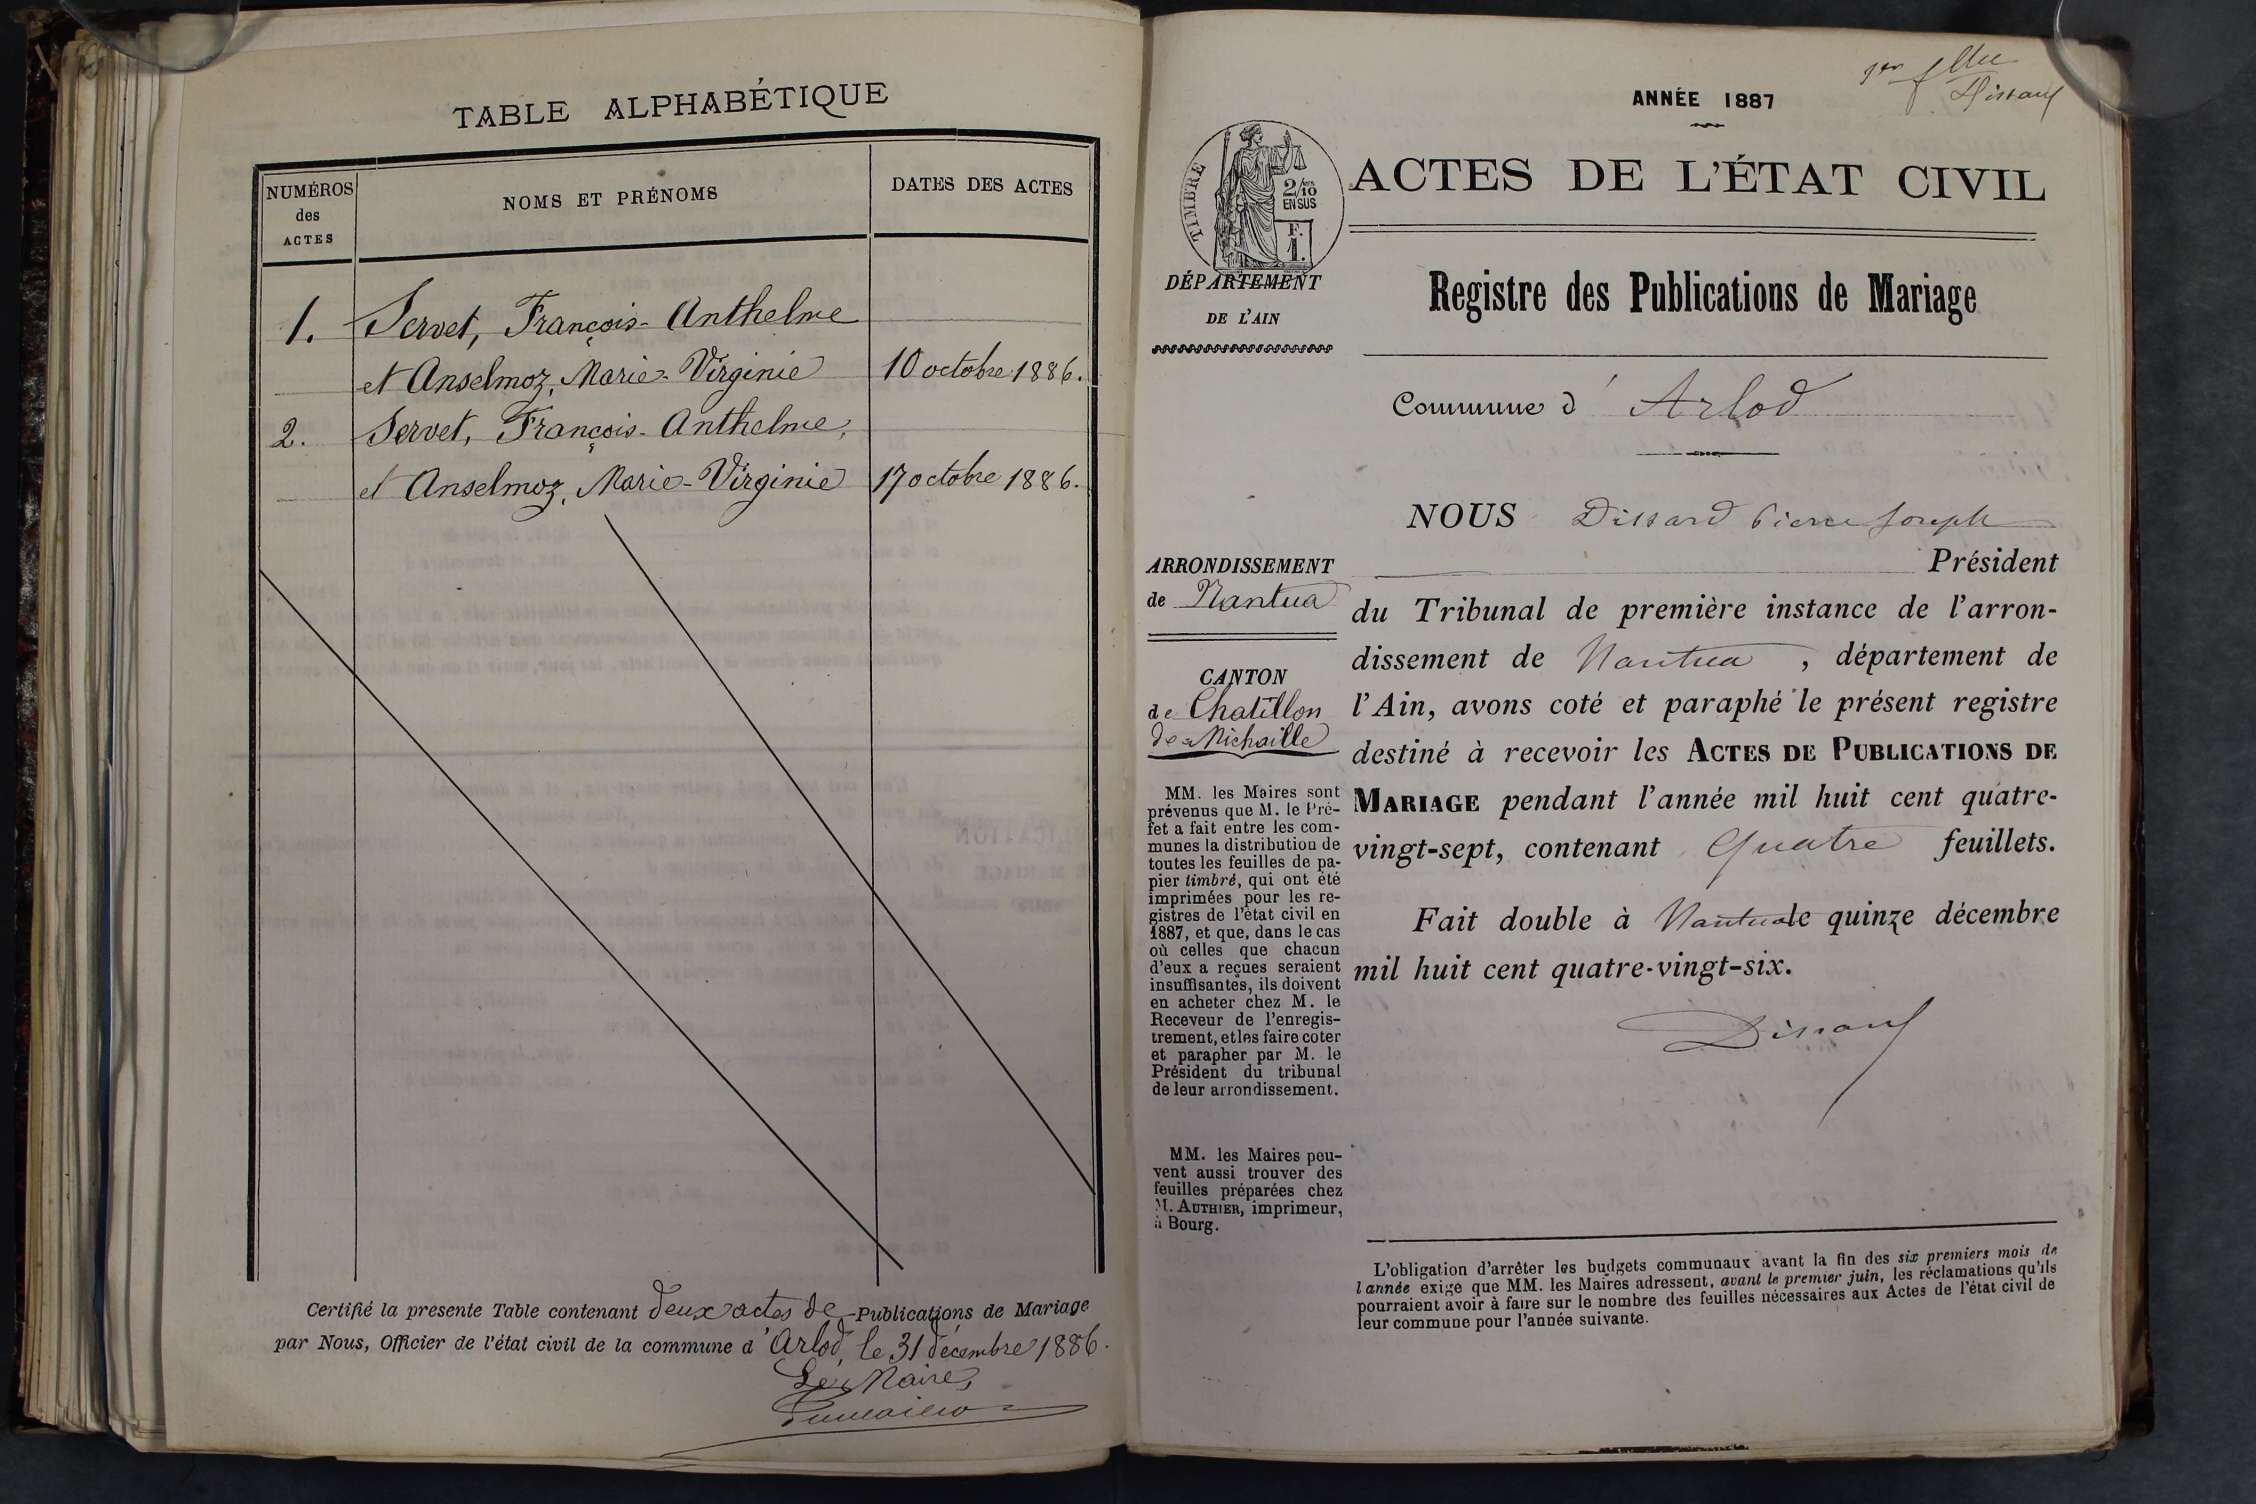 TABLE ALPHABÉTIQUE
NUMÉROS
des
ACTES
NOMS ET PRÉNOMS
DATES DES ACTES
1. Servet, François-Anthelme
et Anselmoz, Marie-Virginie 10 octobre 1886.
2. Servet, François-Anthelme,
et Anselmoz, Marie-Virginie 17 octobre 1886.
Certifié la présente Table contenant deux actes de Publications de Mariage
par Nous, Officier de l'état civil de la commune d'Arlod, le 31 décembre 1886.
Le Maire,
1er
Dissard
ANNÉE 1887
TIMBRE
2/10
EN SUS
F.
1.
ACTES DE L'ÉTAT CIVIL
DÉPARTEMENT
DE L'AIN
Registre des Publications de Mariage
Commune d' Arlod
NOUS Dissard Pierre Joseph
Président
ARRONDISSEMENT
de Nantua
CANTON
de Chatillon
de Michaille
MM. les Maires sont
prévenus que M. le Pré-
fet a fait entre les com-
munes la distribution de
toutes les feuilles de pa-
pier timbré, qui ont été
imprimées pour les re-
gistres de l'état civil en
1887, et que, dans le cas
où celles que chacun
d'eux a reçues seraient
insuffisantes, ils doivent
en acheter chez M. le
Receveur de l'enregis-
trement, et les faire coter
et parapher par M. le
Président du tribunal
de leur arrondissement.
MM. les Maires peu-
vent aussi trouver des
feuilles préparées chez
M. AUTHIER, imprimeur,
à Bourg.
du Tribunal de première instance de l'arron-
dissement de Nantua, département de
l'Ain, avons coté et paraphé le présent registre
destiné à recevoir les ACTES DE PUBLICATIONS DE
MARIAGE pendant l'année mil huit cent quatre-
vingt-sept, contenant Quatre feuillets.
Fait double à Nantua le quinze décembre
mil huit cent quatre-vingt-six.
Dissard
L'obligation d'arrêter les budgets communaux avant la fin des six premiers mois de
l'année exige que MM. les Maires adressent, avant le premier juin, les réclamations qu'ils
pourraient avoir à faire sur le nombre des feuilles nécessaires aux Actes de l'état civil de
leur commune pour l'année suivante.